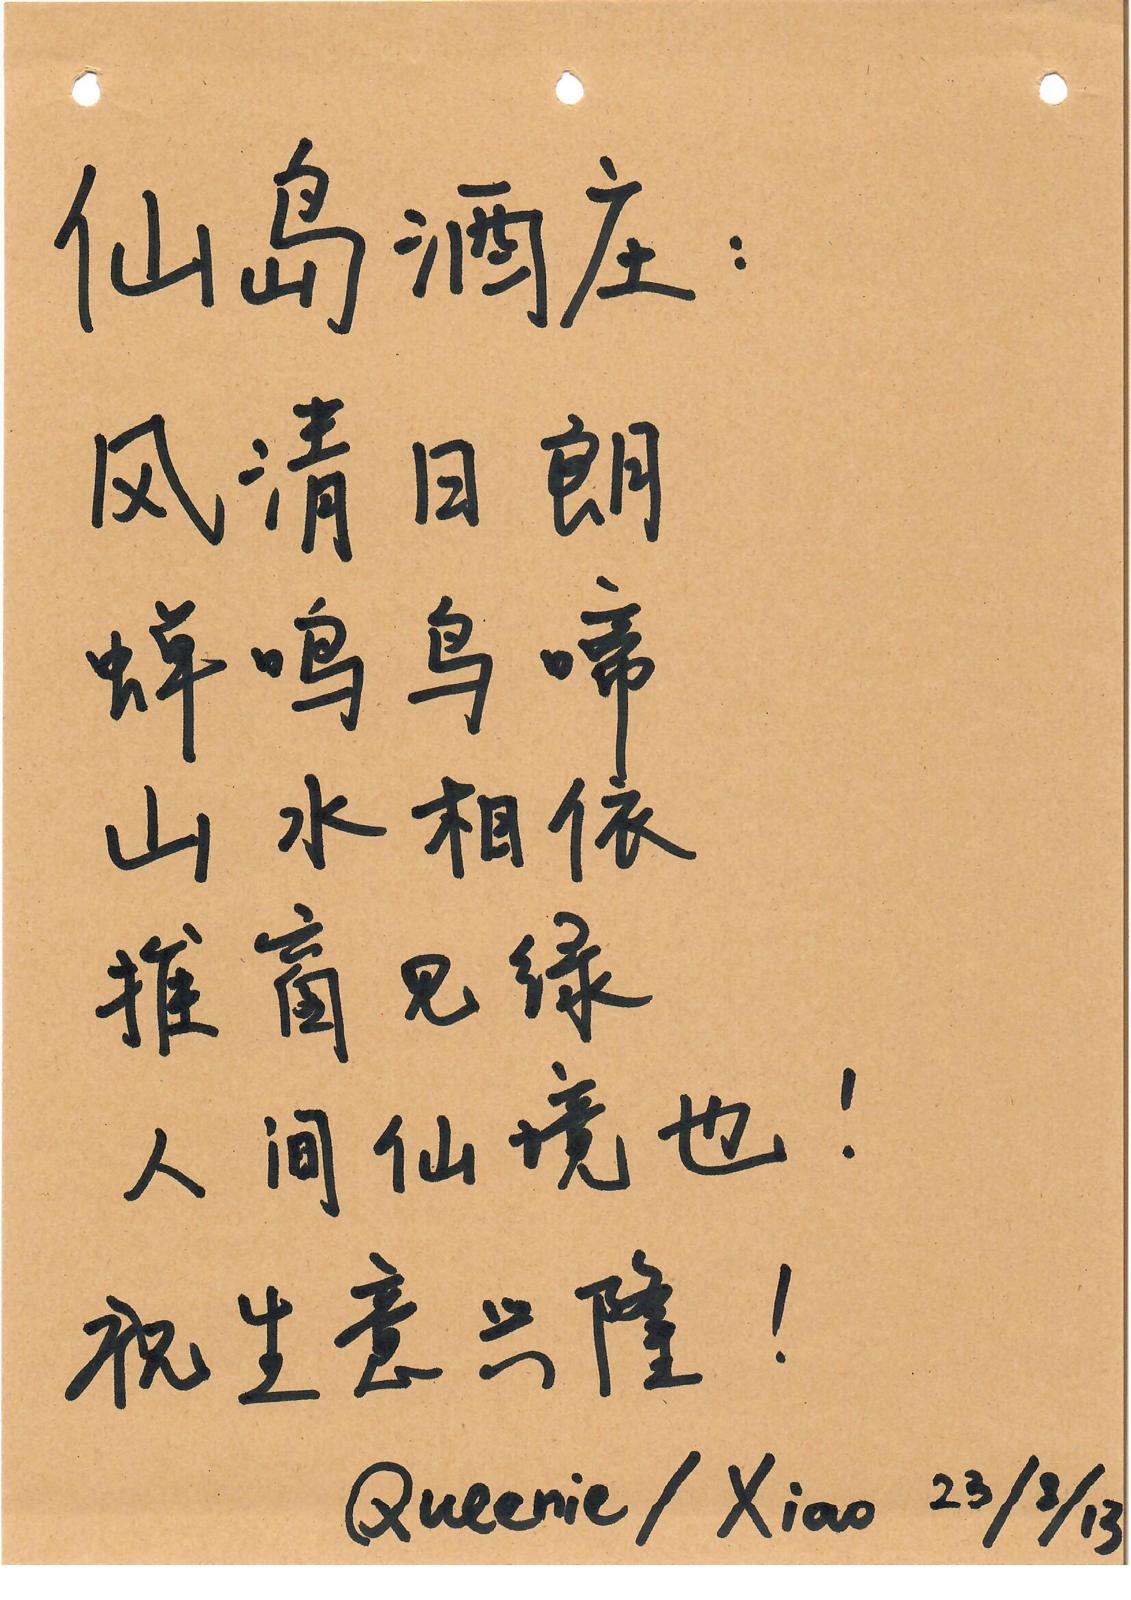 仙岛酒庄:
风清日朗
蝉鸣鸟啼
山水相依
推窗见绿
人间仙境也!
祝生意兴隆!
Queenie/Xiao 23/8/13